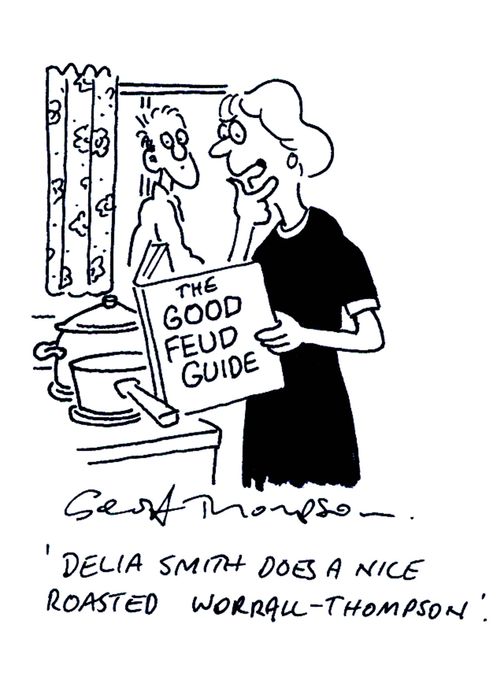 THE
GOOD
FEUD
GUIDE
Geoff Thompson.
'DELIA SMITH DOES A NICE
ROASTED WORRALL-THOMPSON'.